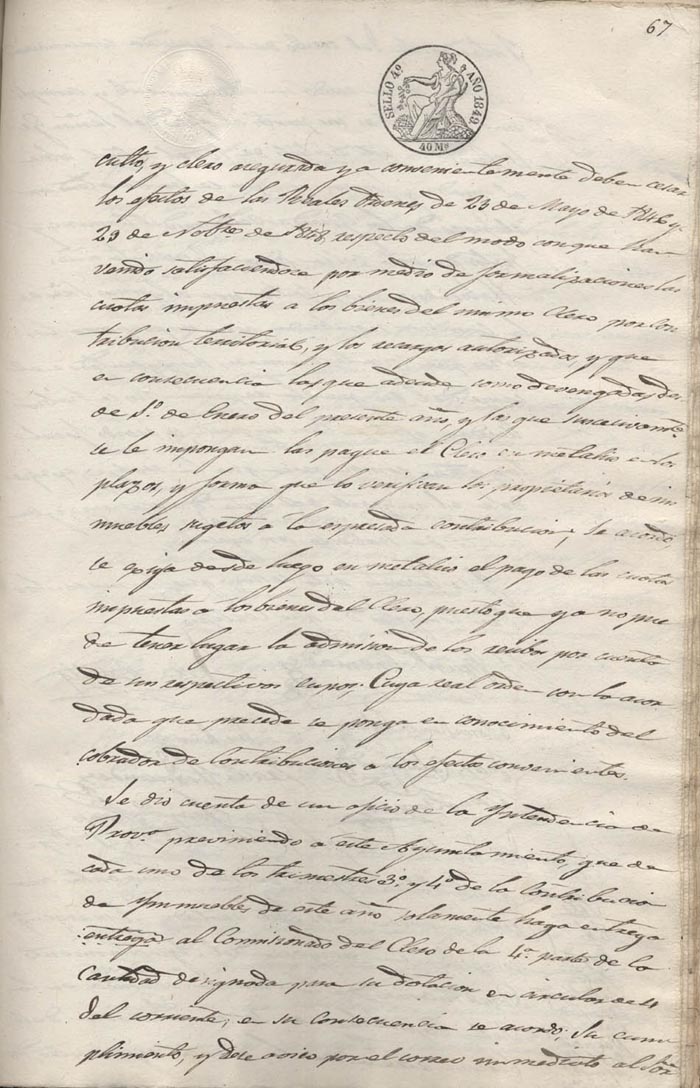 67
SELLO 4º AÑO 1849.
40 Ms
culto, y clero asegurada ya convenientemente deben cesar
los efectos de las Reales Ordenes de 23 de Mayo de 1846 y
23 de Nobre. de 1848, respecto del modo con que han
venido satisfaciendose por medio de formalizaciones las
cuotas impuestas a los bienes del mismo Clero por con
tribucion territorial, y los recargos autorizados, y que
en consecuencia las que adeude como devengadas des
de 1º de Enero del presente año, y las que sucesivamte.
se le impongan las pague el Clero en metalico en los
plazos, y forma que lo verifican los propietarios de in
muebles sugetos a la espresada contribucion; Se acordó,
se exija desde luego en metalico el pago de las cuotas
impuestas a los bienes del Clero, puesto que ya no pue
de tener lugar la admision de los recibos por cuenta
de sus respectivos cupos. Cuya real orden con lo acor
dado que precede se ponga en conocimiento del
cobrador de Contribuciones a los efectos convenientes.
Se dio cuenta de un oficio de la Yntendencia de
Prova. previniendo a este Ayuntamiento, que de
cada uno de los trimestres 3º. y 4º de la Contribucio
de Ynmuebles de este año solamente haga entrega
entrega al Comisionado del Clero de la 4ª. parte de la
Cantidad designada para su dotacion en circular de 4
del corriente; en su consecuencia se acordo; Su cum
plimiento, y dese aviso por el correo inmediato al Sor.